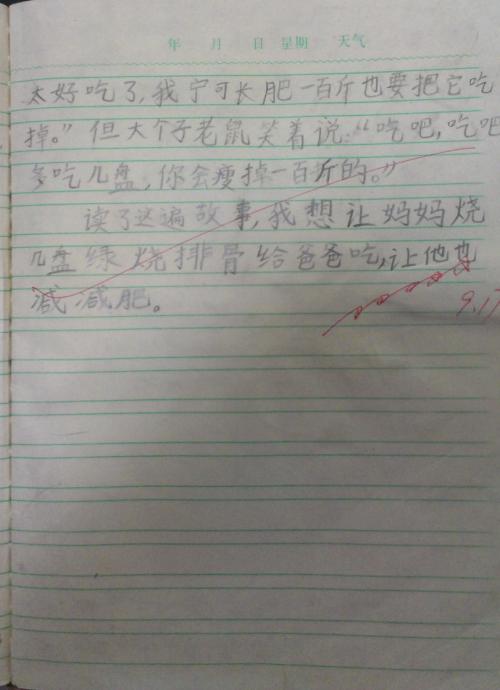 年 月 日 星期 天气
太好吃了,我宁可长肥一百斤也要把它吃
掉。”但大个子老鼠笑着说:“吃吧,吃吧
多吃几盘,你会瘦掉一百斤的。”
读了这遍故事,我想让妈妈烧
几盘绿烧排骨给爸爸吃,让他也
减减肥。
9.17